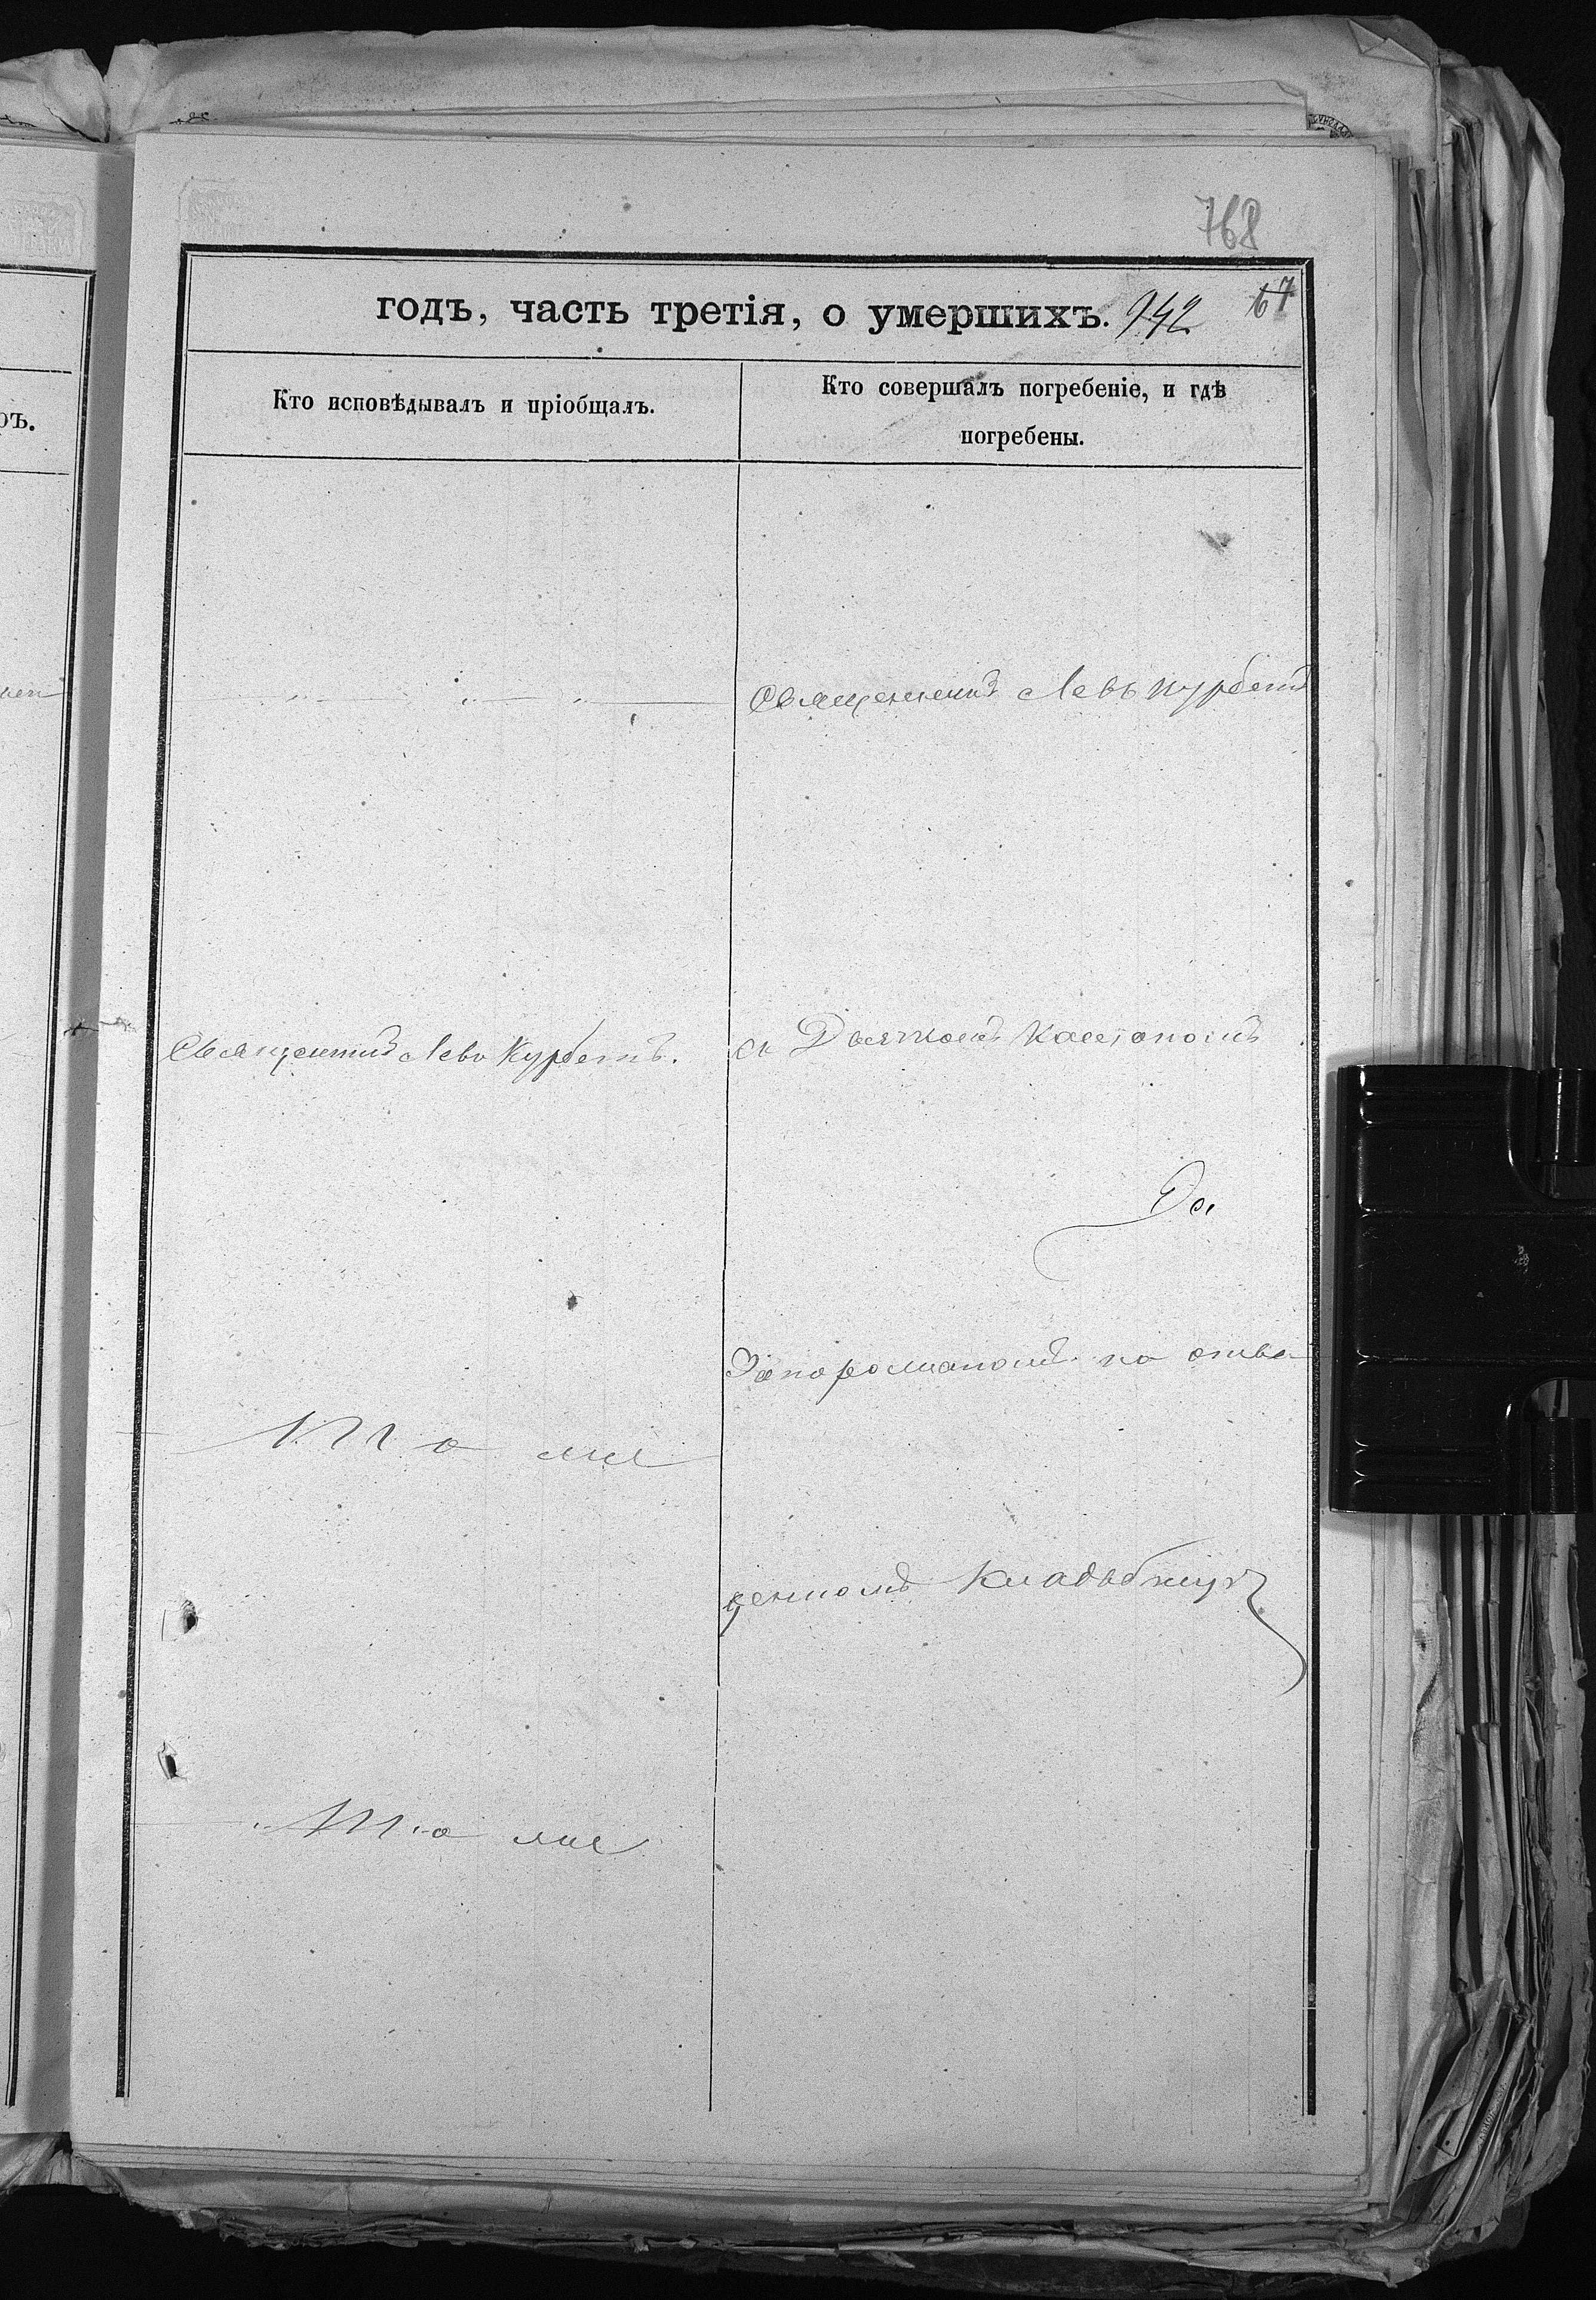 768
годъ, часть третія, о умершихъ. 942 67
Кто исповѣдывалъ и пріобщалъ.
Кто совершалъ погребеніе, и гдѣ
погребены.
ръ.
Священникъ Левъ Курбетъ
Священникъ Левъ Курбетъ.
съ Дьячкомъ
То же
на отве
денномъ Кладбищѣ
То же